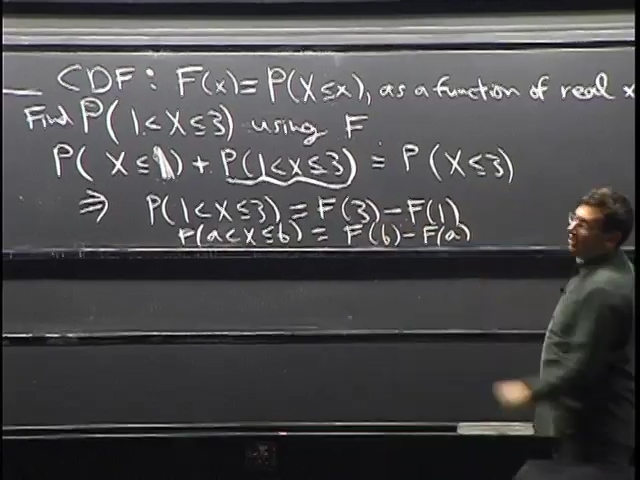 CDF: F(x) = P(X ≤ x), as a function of real x
Find P(1 < X ≤ 3) using F
P(X ≤ 1) + P(1 < X ≤ 3) = P(X ≤ 3)
⇒ P(1 < X ≤ 3) = F(3) - F(1)
P(a < X ≤ b) = F(b) - F(a)